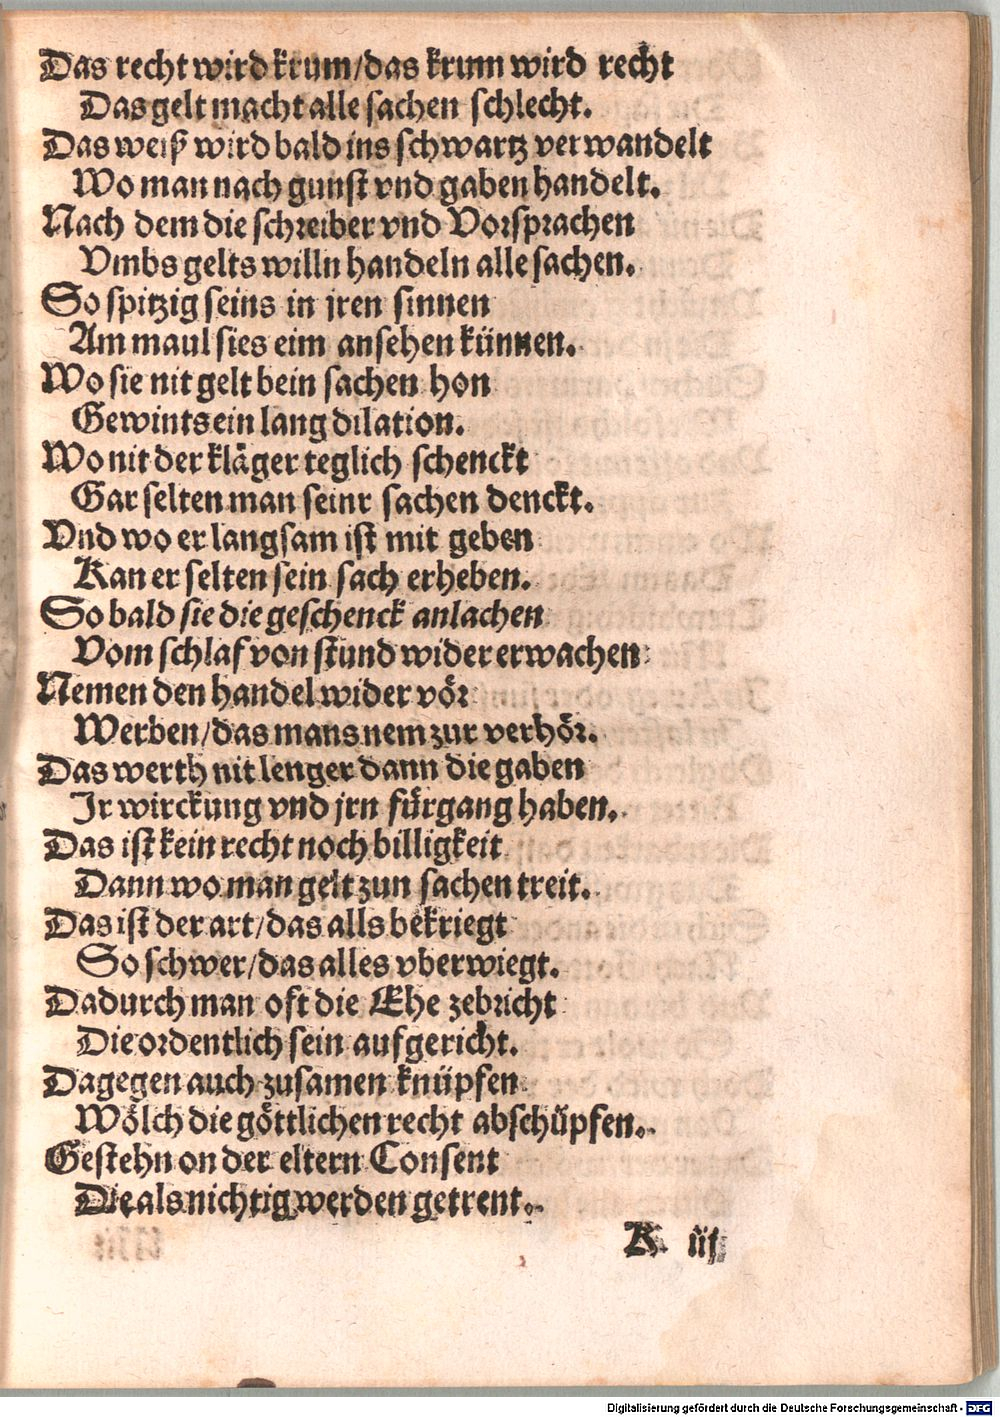 Das recht wird krum/das krum wird recht
Das gelt macht alle sachen schlecht.
Das weiß wird bald ins schwartz verwandelt
Wo man nach gunst vnd gaben handelt.
Nach dem die schreiber vnd Vorsprachen
Vmbs gelts willn handeln alle sachen.
So spitzig seins in jren sinnen
Am maul sies eim ansehen künnen.
Wo sie nit gelt bein sachen hon
Gewints ein lang dilation.
Wo nit der kläger teglich schenckt
Gar selten man seinr sachen denckt.
Vnd wo er langsam ist mit geben
Kan er selten sein sach erheben.
So bald sie die geschenck anlachen
Vom schlaf von stund wider erwachen
Nemen den handel wider vör
Werben/das mans nem zur verhör.
Das werth nit lenger dann die gaben
Ir wirckung vnd jrn fürgang haben.
Das ist kein recht noch billigkeit
Dann wo man gelt zun sachen treit.
Das ist der art/das alls bekriegt
So schwer/das alles vberwiegt.
Dadurch man oft die Ehe zebricht
Die ordentlich sein aufgericht.
Dagegen auch zusamen knüpfen
Wölch die göttlichen recht abschüpfen.
Gestehn on der eltern Consent
Die als nichtig werden getrent.
K iij
Digitalisierung gefördert durch die Deutsche Forschungsgemeinschaft - DFG